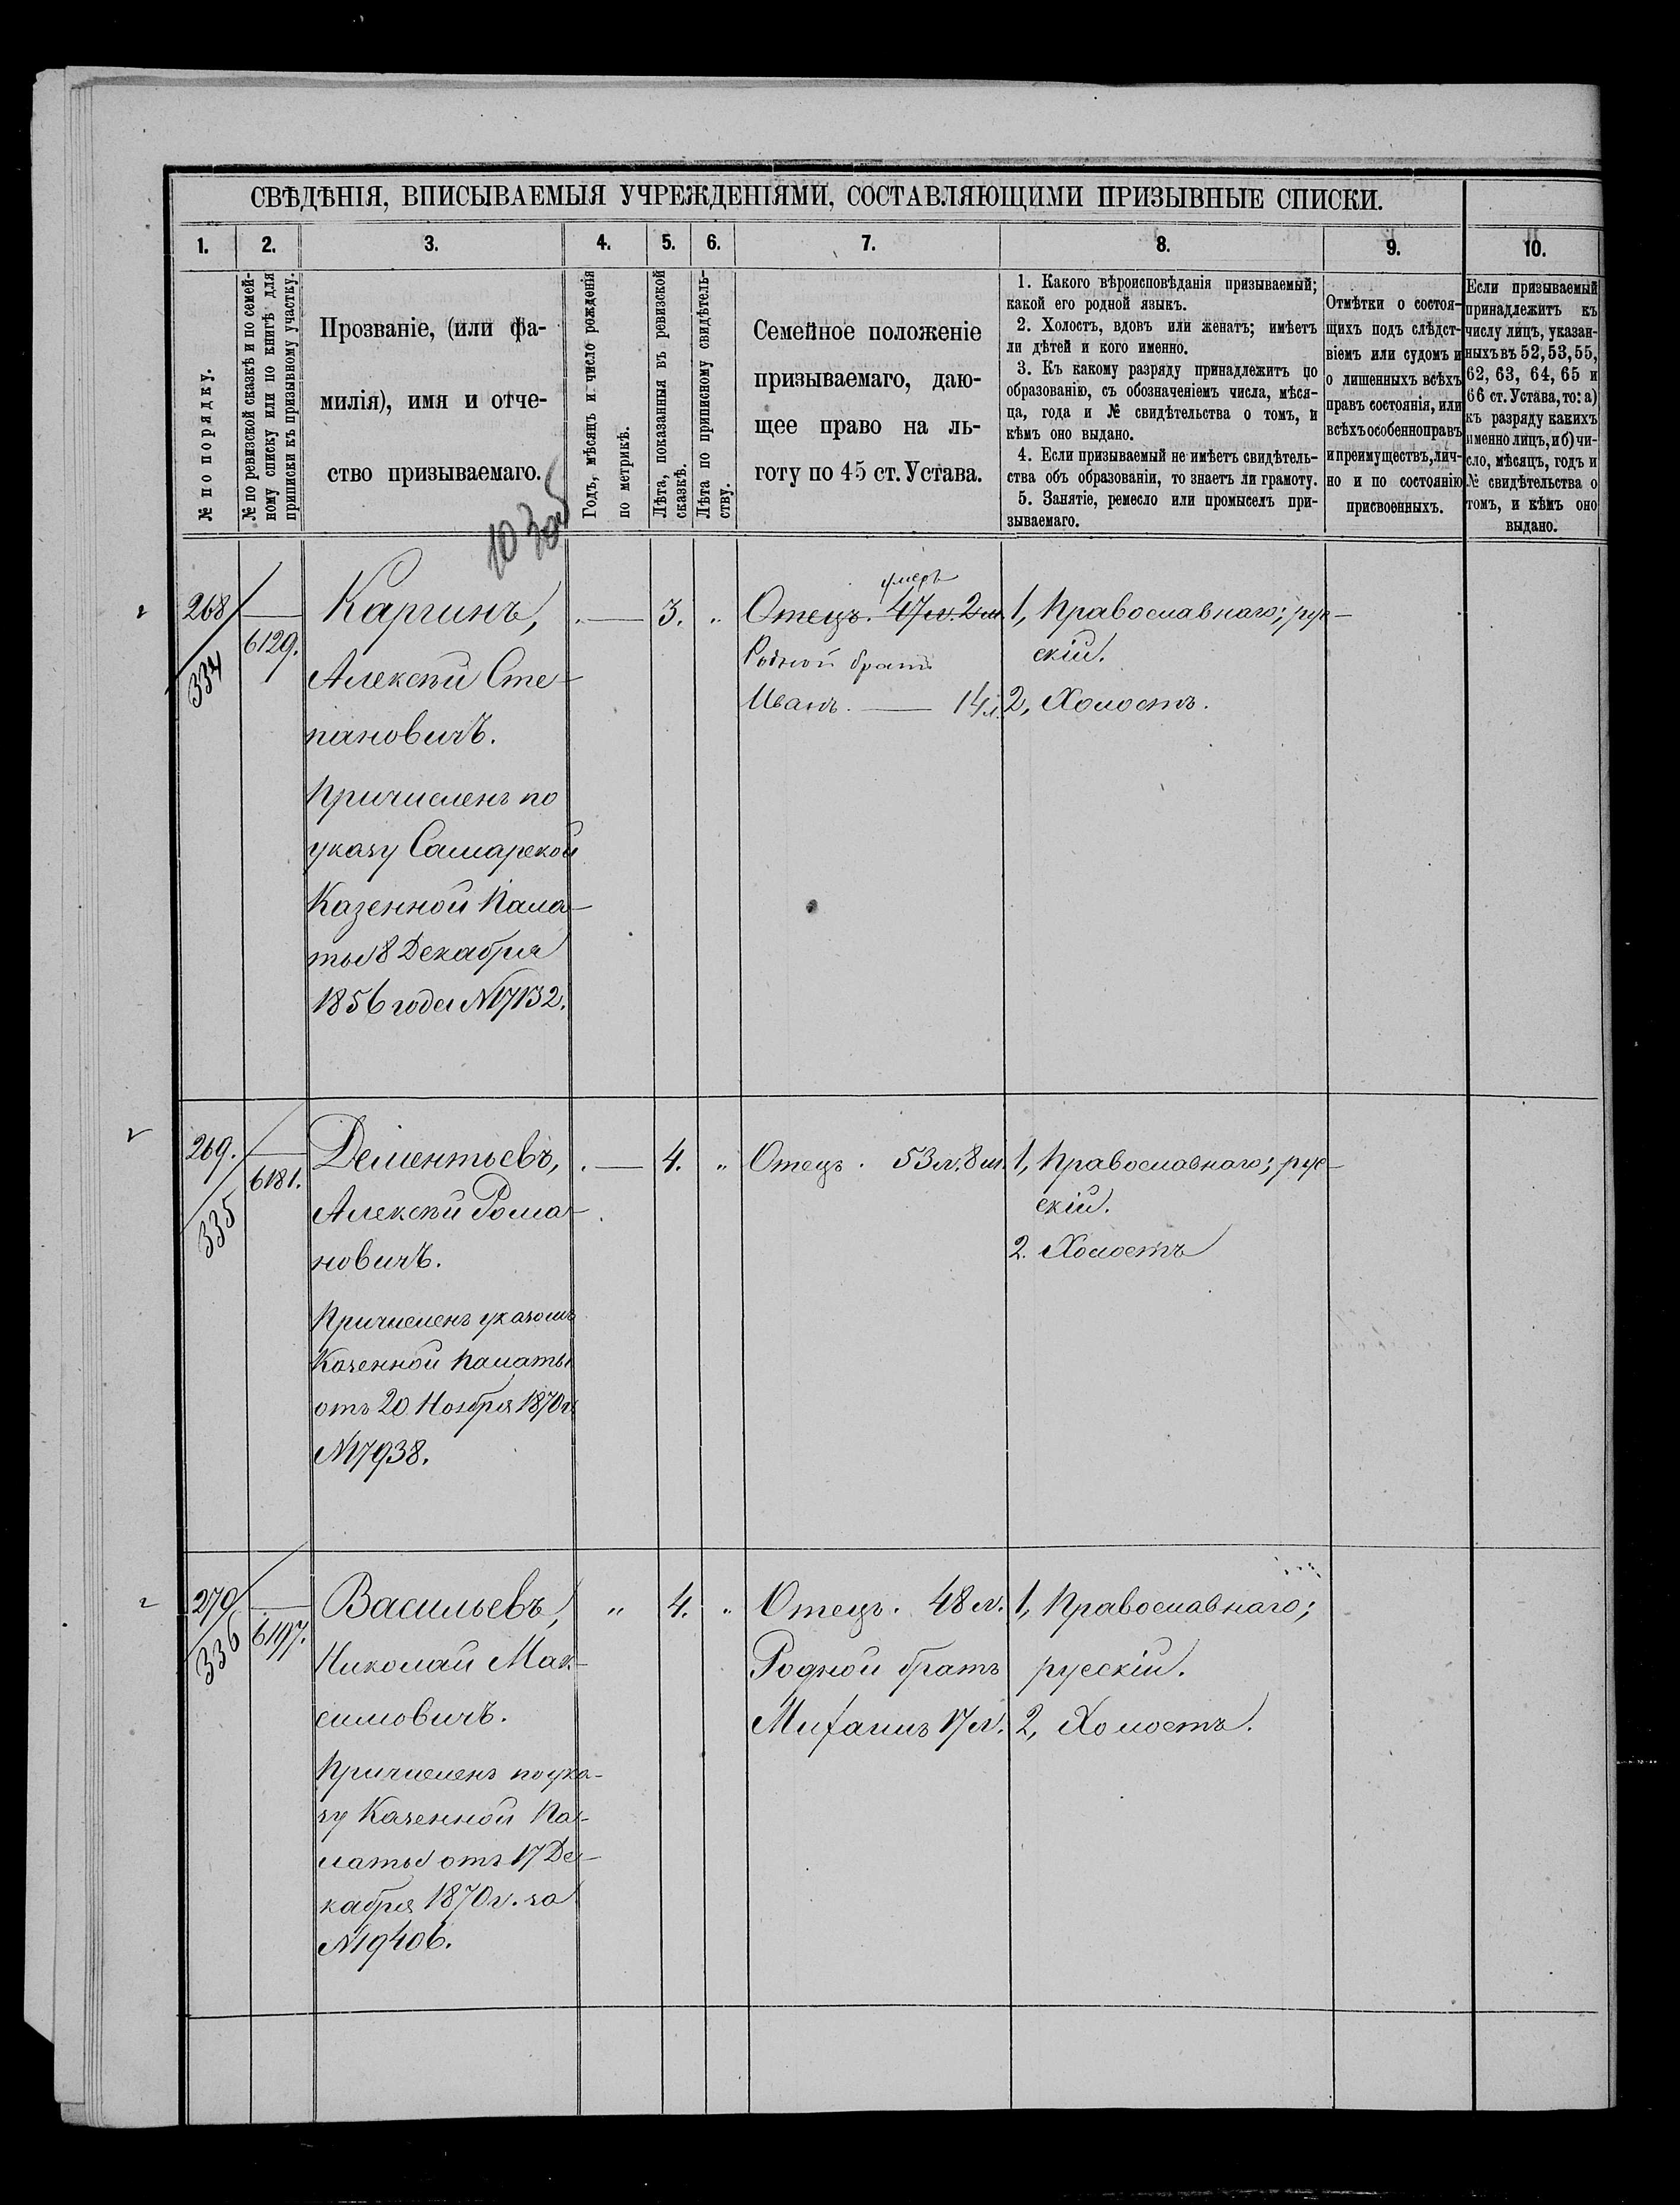 СВѢДѢНІЯ, ВПИСЫВАЕМЫЯ УЧРЕЖДЕНІЯМИ, СОСТАВЛЯЮЩИМИ ПРИЗЫВНЫЕ СПИСКИ.
1. 2. 3. 4. 5. 6. 7. 8. 9. 10.
№ по порядку.
№ по ревизской сказкѣ и по семей-
ному списку или по книгѣ для
приписки къ призывному участку.
Прозваніе, (или фа-
милія), имя и отче-
ство призываемаго.
Годъ, мѣсяцъ и число рожденія
по метрикѣ.
Лѣта, показанныя въ ревизской
сказкѣ.
Лѣта по приписному свидѣтель-
ству.
Семейное положеніе
призываемаго, даю-
щее право на ль-
готу по 45 ст. Устава.
1. Какого вѣроисповѣданія призываемый;
какой его родной языкъ.
2. Холостъ, вдовъ или женатъ; имѣетъ
ли дѣтей и кого именно.
3. Къ какому разряду принадлежитъ по
образованію, съ обозначеніемъ числа, мѣся-
ца, года и № свидѣтельства о томъ, и
кѣмъ оно выдано.
4. Если призываемый не имѣетъ свидѣтель-
ства объ образованіи, то знаетъ ли грамоту.
5. Занятіе, ремесло или промыселъ при-
зываемаго.
Отмѣтки о состоя-
щихъ подъ слѣдст-
віемъ или судомъ и
о лишенныхъ всѣхъ
правъ состоянія, или
всѣхъ особенно правъ
и преимуществъ, лич-
но и по состоянію
присвоенныхъ.
Если призываемый
принадлежитъ къ
числу лицъ, указан-
ныхъ въ 52, 53, 55,
62, 63, 64, 65 и
66 ст. Устава, то: а)
къ разряду какихъ
именно лицъ, и б) чи-
сло, мѣсяцъ, годъ и
№ свидѣтельства о
томъ, и кѣмъ оно
выдано.
268
334
6129.
Каргинъ,
Алексѣй Сте-
пановичъ.
Причисленъ по
указу Самарской
Казенной Пала-
ты 8 Декабря
1856 года №7132.
3. "
умеръ
Отецъ. 47 л. 2 м.
Родной братъ
Иванъ. — 14 л.
1, Православнаго; рус-
скій.
2, Холостъ.
269.
335
6181.
Дементьевъ,
Алексѣй Рома-
новичъ.
Причисленъ указомъ
Казенной Палаты
отъ 20 Ноября 1870 г.
№17938.
4. "
Отецъ. 53 л. 8 м.
1, Православнаго; рус-
скій.
2. Холостъ
270
336
6197.
Васильевъ,
Николай Мак-
симовичъ.
Причисленъ по ука-
зу Казенной Па-
латы отъ 17 Де-
кабря 1870 г. за
№19406.
" 4. "
Отецъ. 48 л.
Родной братъ
Михаилъ 17 л.
1, Православнаго;
русскій.
2, Холостъ.